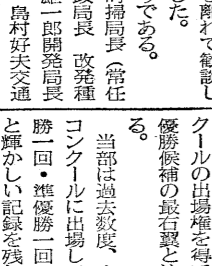 離れて歓談し
た。
りである。
掃局長（常任
政局長　改発種
雄一郎開発局長
島村好夫交通
クールの出場権を得
優勝候補の最右翼と
る。
当部は過去数度、
コンクールに出場し
勝一回・準優勝一回
と輝かしい記録を残